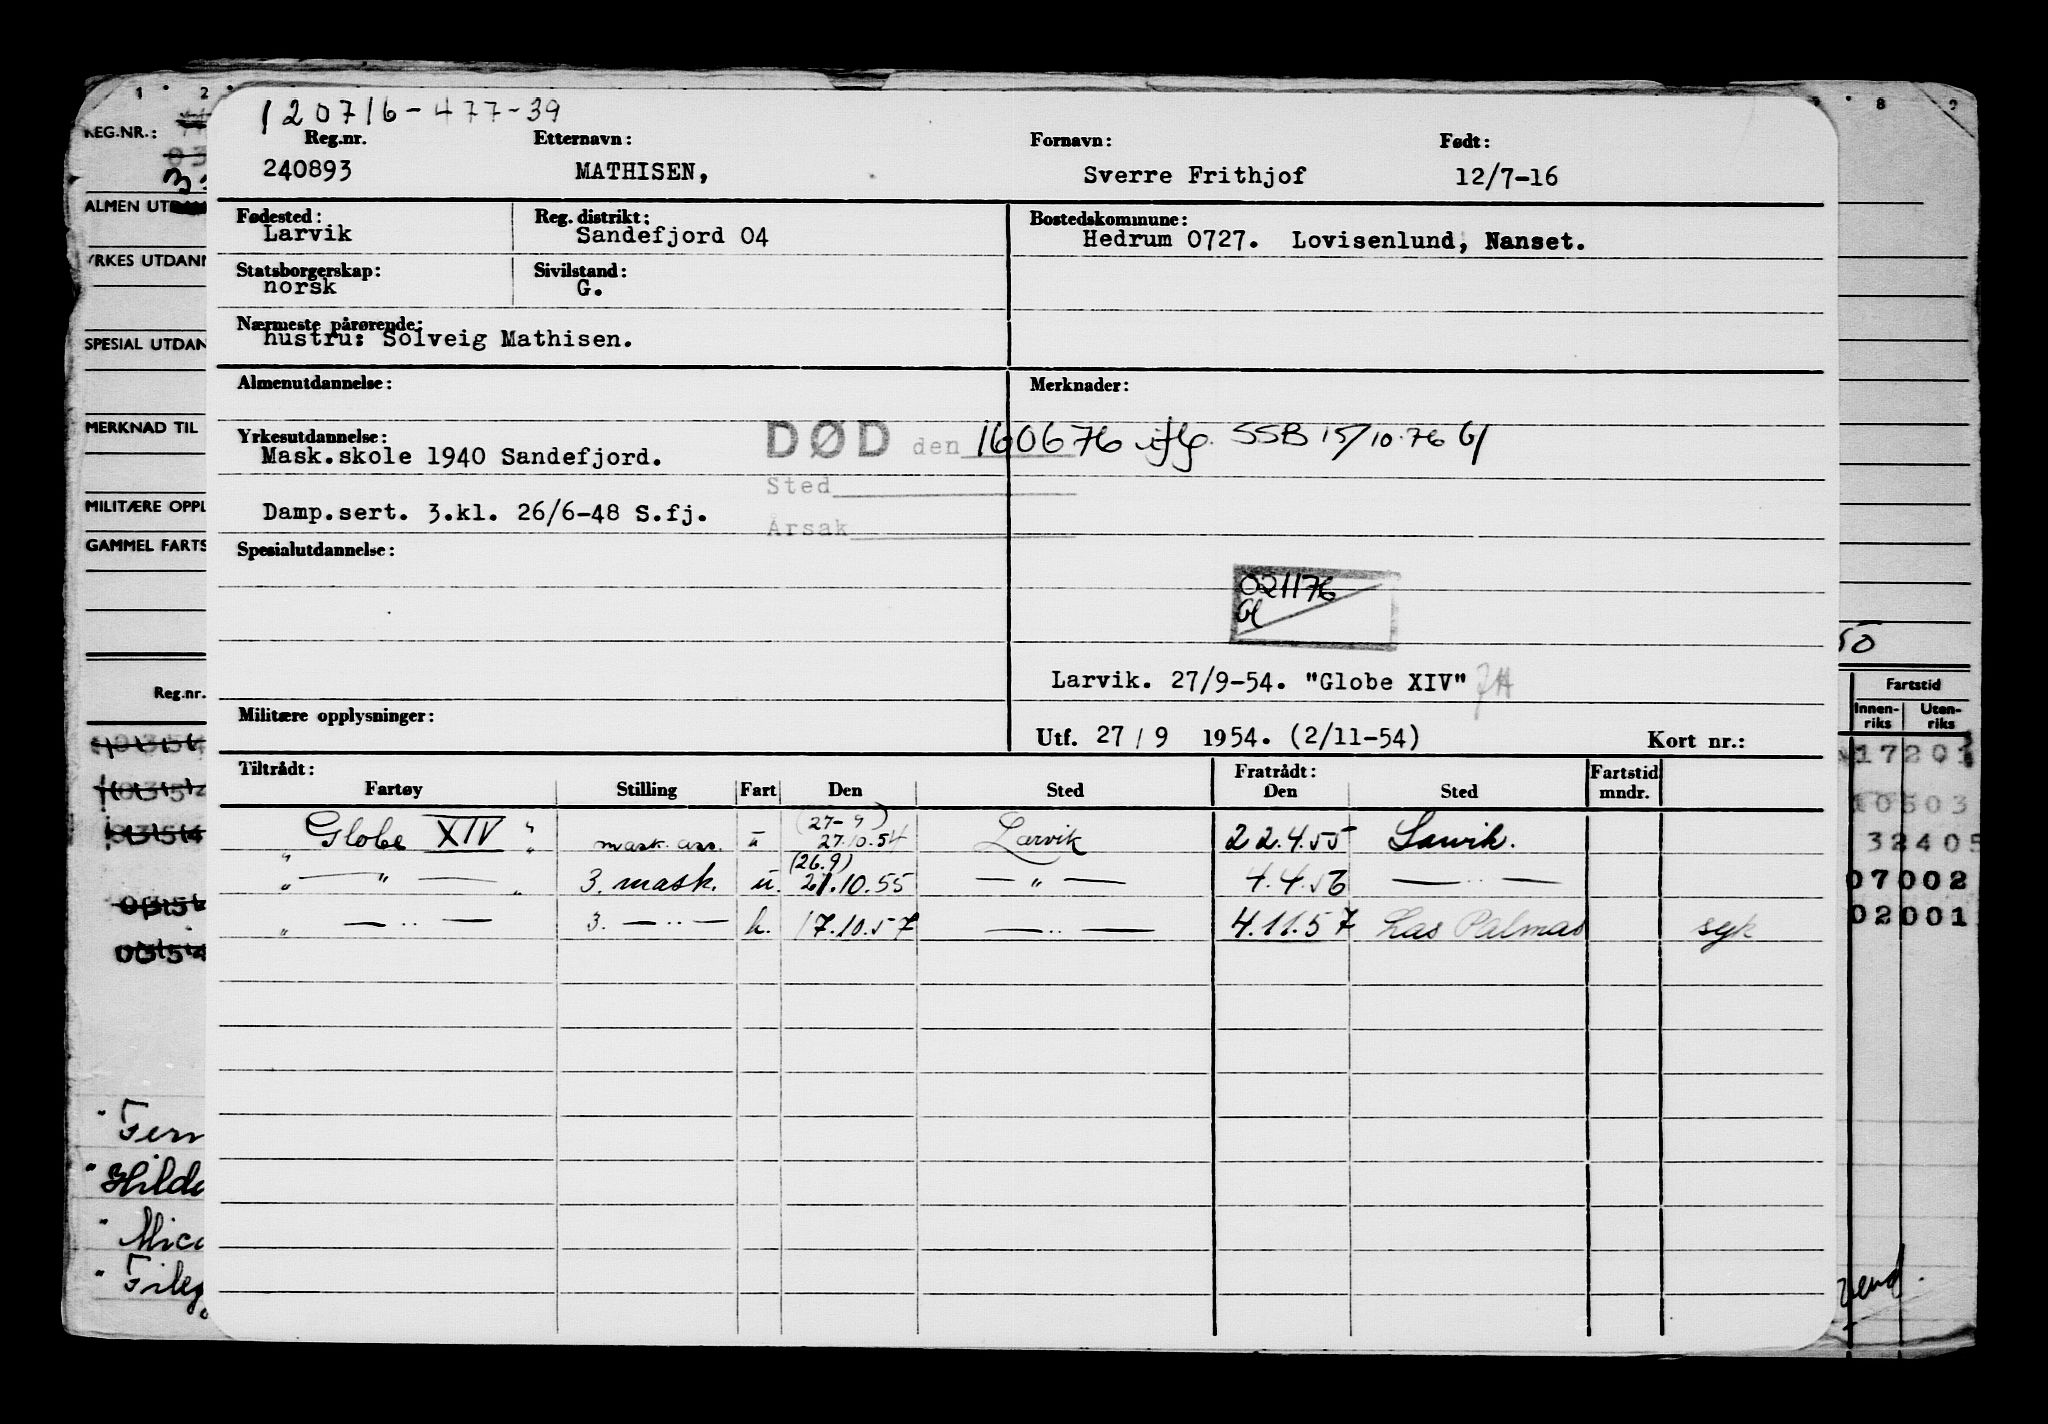 120716-477-39
Reg.nr. Etternavn: Fornavn: Født:
240893 MATHISEN, Sverre Frithjof 12/7-16
Fødested: Reg. distrikt: Bostedskommune:
Larvik Sandefjord 04 Hedrum 0727. Lovisenlund, Nanset.
Statsborgerskap: Sivilstand:
norsk G.
Nærmeste pårørende:
hustru: Solveig Mathisen.
Almenutdannelse: Merknader:
Yrkesutdannelse: DØD den 160676 iflg. SSB 15/10.76 Gl
Mask.skole 1940 Sandefjord.
Sted
Damp.sert. 3.kl. 26/6-48 S.fj.
Årsak
Spesialutdannelse:
021176
Gl
Larvik. 27/9-54. "Globe XIV"
Militære opplysninger:
Utf. 27 / 9 1954. (2/11-54) Kort nr.:
Tiltrådt: Fratrådt: Fartstid
Fartøy Stilling Fart Den Sted Den Sted mndr.
(27-9)
"Globe XIV" mask. ass. u 27.10.54 Larvik 22.4.55 Larvik.
(26.9)
" — " — " 3. mask. u. 21.10.55 — " — 4.4.56 — " —
" — " — 3. — " — h. 17.10.57 — " — 4.11.57 Las Palmas syk
1 2 8 9
REG.NR.:
ALMEN UT
YRKES UTDANN
SPESIAL UTDAN
MERKNAD TIL
MILITÆRE OPPL
GAMMEL FARTS
Reg.nr.
"Fern
"Hilda
"Mica
50
Fartstid
Innen-riks Uten-riks
17201
10503
32405
07002
02001